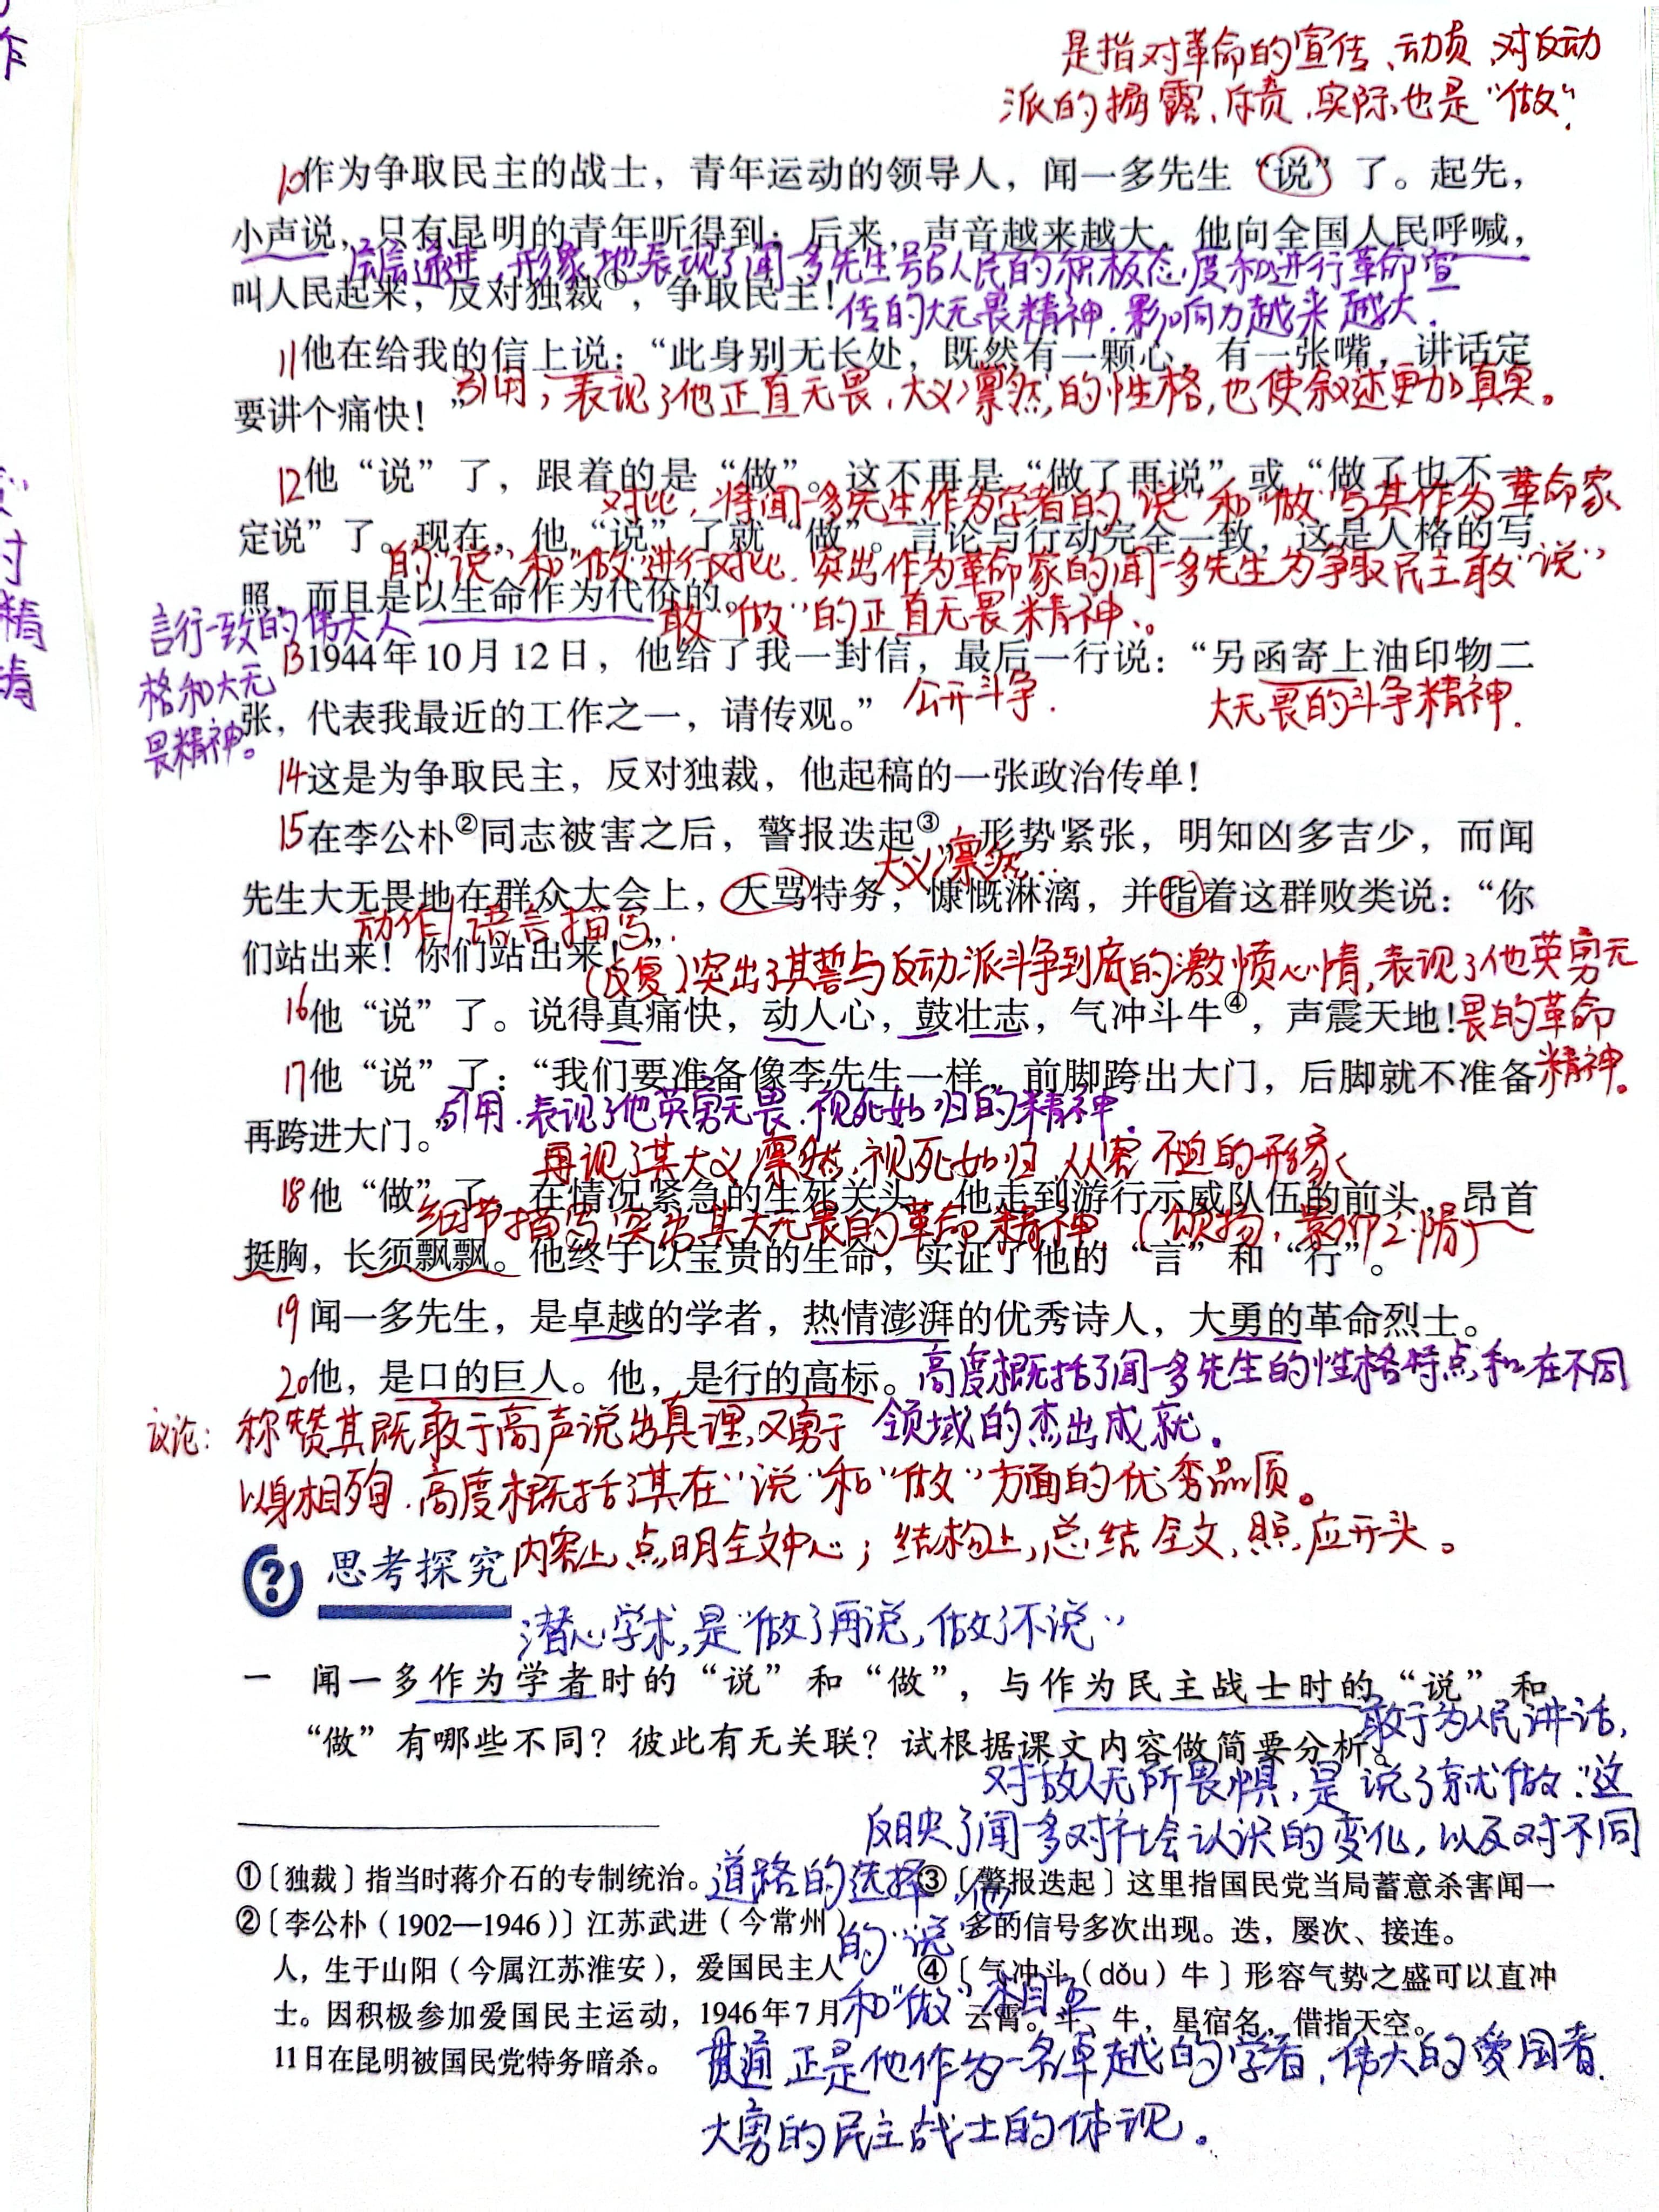 是指对革命的宣传、动员、对反动
派的揭露、斥责，实际也是“做”。
10作为争取民主的战士，青年运动的领导人，闻一多先生“说”了。起先，
小声说，只有昆明的青年听得到；后来，声音越来越大，他向全国人民呼喊，
层层递进，形象地表现了闻一多先生号召人民的积极态度和进行革命宣
叫人民起来，反对独裁①，争取民主！
传的大无畏精神，影响力越来越大。
11他在给我的信上说：“此身别无长处，既然有一颗心，有一张嘴，讲话定
引用，表现了他正直无畏，大义凛然的性格，也使叙述更加真实。
要讲个痛快！”
12他“说”了，跟着的是“做”。这不再是“做了再说”或“做了也不一
对比，将闻一多先生作为学者的“说”和“做”与其作为革命家
定说”了。现在，他“说”了就“做”。言论与行动完全一致，这是人格的写
的“说”和“做”进行对比，突出作为革命家的闻一多先生为争取民主敢“说”
照，而且是以生命作为代价的。
敢“做”的正直无畏精神。
言行一致的伟大人
格和大无
畏精神。
131944年10月12日，他给了我一封信，最后一行说：“另函寄上油印物二
张，代表我最近的工作之一，请传观。”
公开斗争.
大无畏的斗争精神.
14这是为争取民主，反对独裁，他起稿的一张政治传单！
15在李公朴②同志被害之后，警报迭起③，形势紧张，明知凶多吉少，而闻
大义凛然…
先生大无畏地在群众大会上，大骂特务，慷慨淋漓，并指着这群败类说：“你
动作/语言描写.
们站出来！你们站出来！”
(反复)突出了其誓与反动派斗争到底的激愤心情，表现了他英勇无
畏的革命
精神。
16他“说”了。说得真痛快，动人心，鼓壮志，气冲斗牛④，声震天地！
17他“说”了：“我们要准备像李先生一样，前脚跨出大门，后脚就不准备
再跨进大门。”
引用.表现了他英勇无畏、视死如归的精神.
再现了其大义凛然，视死如归，从容不迫的形象
18他“做”了，在情况紧急的生死关头，他走到游行示威队伍的前头，昂首
细节描写，突出其大无畏的革命精神（颂扬，景仰之情）
挺胸，长须飘飘。他终于以宝贵的生命，实证了他的“言”和“行”。
19闻一多先生，是卓越的学者，热情澎湃的优秀诗人，大勇的革命烈士。
20他，是口的巨人。他，是行的高标。
高度概括了闻一多先生的性格特点和在不同
领域的杰出成就.
议论：称赞其既敢于高声说出真理，又勇于
以身相殉.高度概括了其在“说”和“做”方面的优秀品质。
内容上，点明全文中心；结构上，总结全文，照应开头。
思考探究
潜心学术，是“做了再说，做了不说”
一 闻一多作为学者时的“说”和“做”，与作为民主战士时的“说”和
“做”有哪些不同？彼此有无关联？试根据课文内容做简要分析。
敢于为人民讲话，
对敌人无所畏惧，是“说了就做”.这
反映了闻一多对社会认识的变化，以及对不同
道路的选择，他
的“说”
和“做”
贯通正是他作为一名卓越的学者，伟大的爱国者.
大勇的民主战士的体现。
①〔独裁〕指当时蒋介石的专制统治。
②〔李公朴（1902—1946）〕江苏武进（今常州）
人，生于山阳（今属江苏淮安），爱国民主人
士。因积极参加爱国民主运动，1946年7月
11日在昆明被国民党特务暗杀。
③〔警报迭起〕这里指国民党当局蓄意杀害闻一
多的信号多次出现。迭，屡次、接连。
④〔气冲斗（dǒu）牛〕形容气势之盛可以直冲
云霄。斗、牛，星宿名，借指天空。